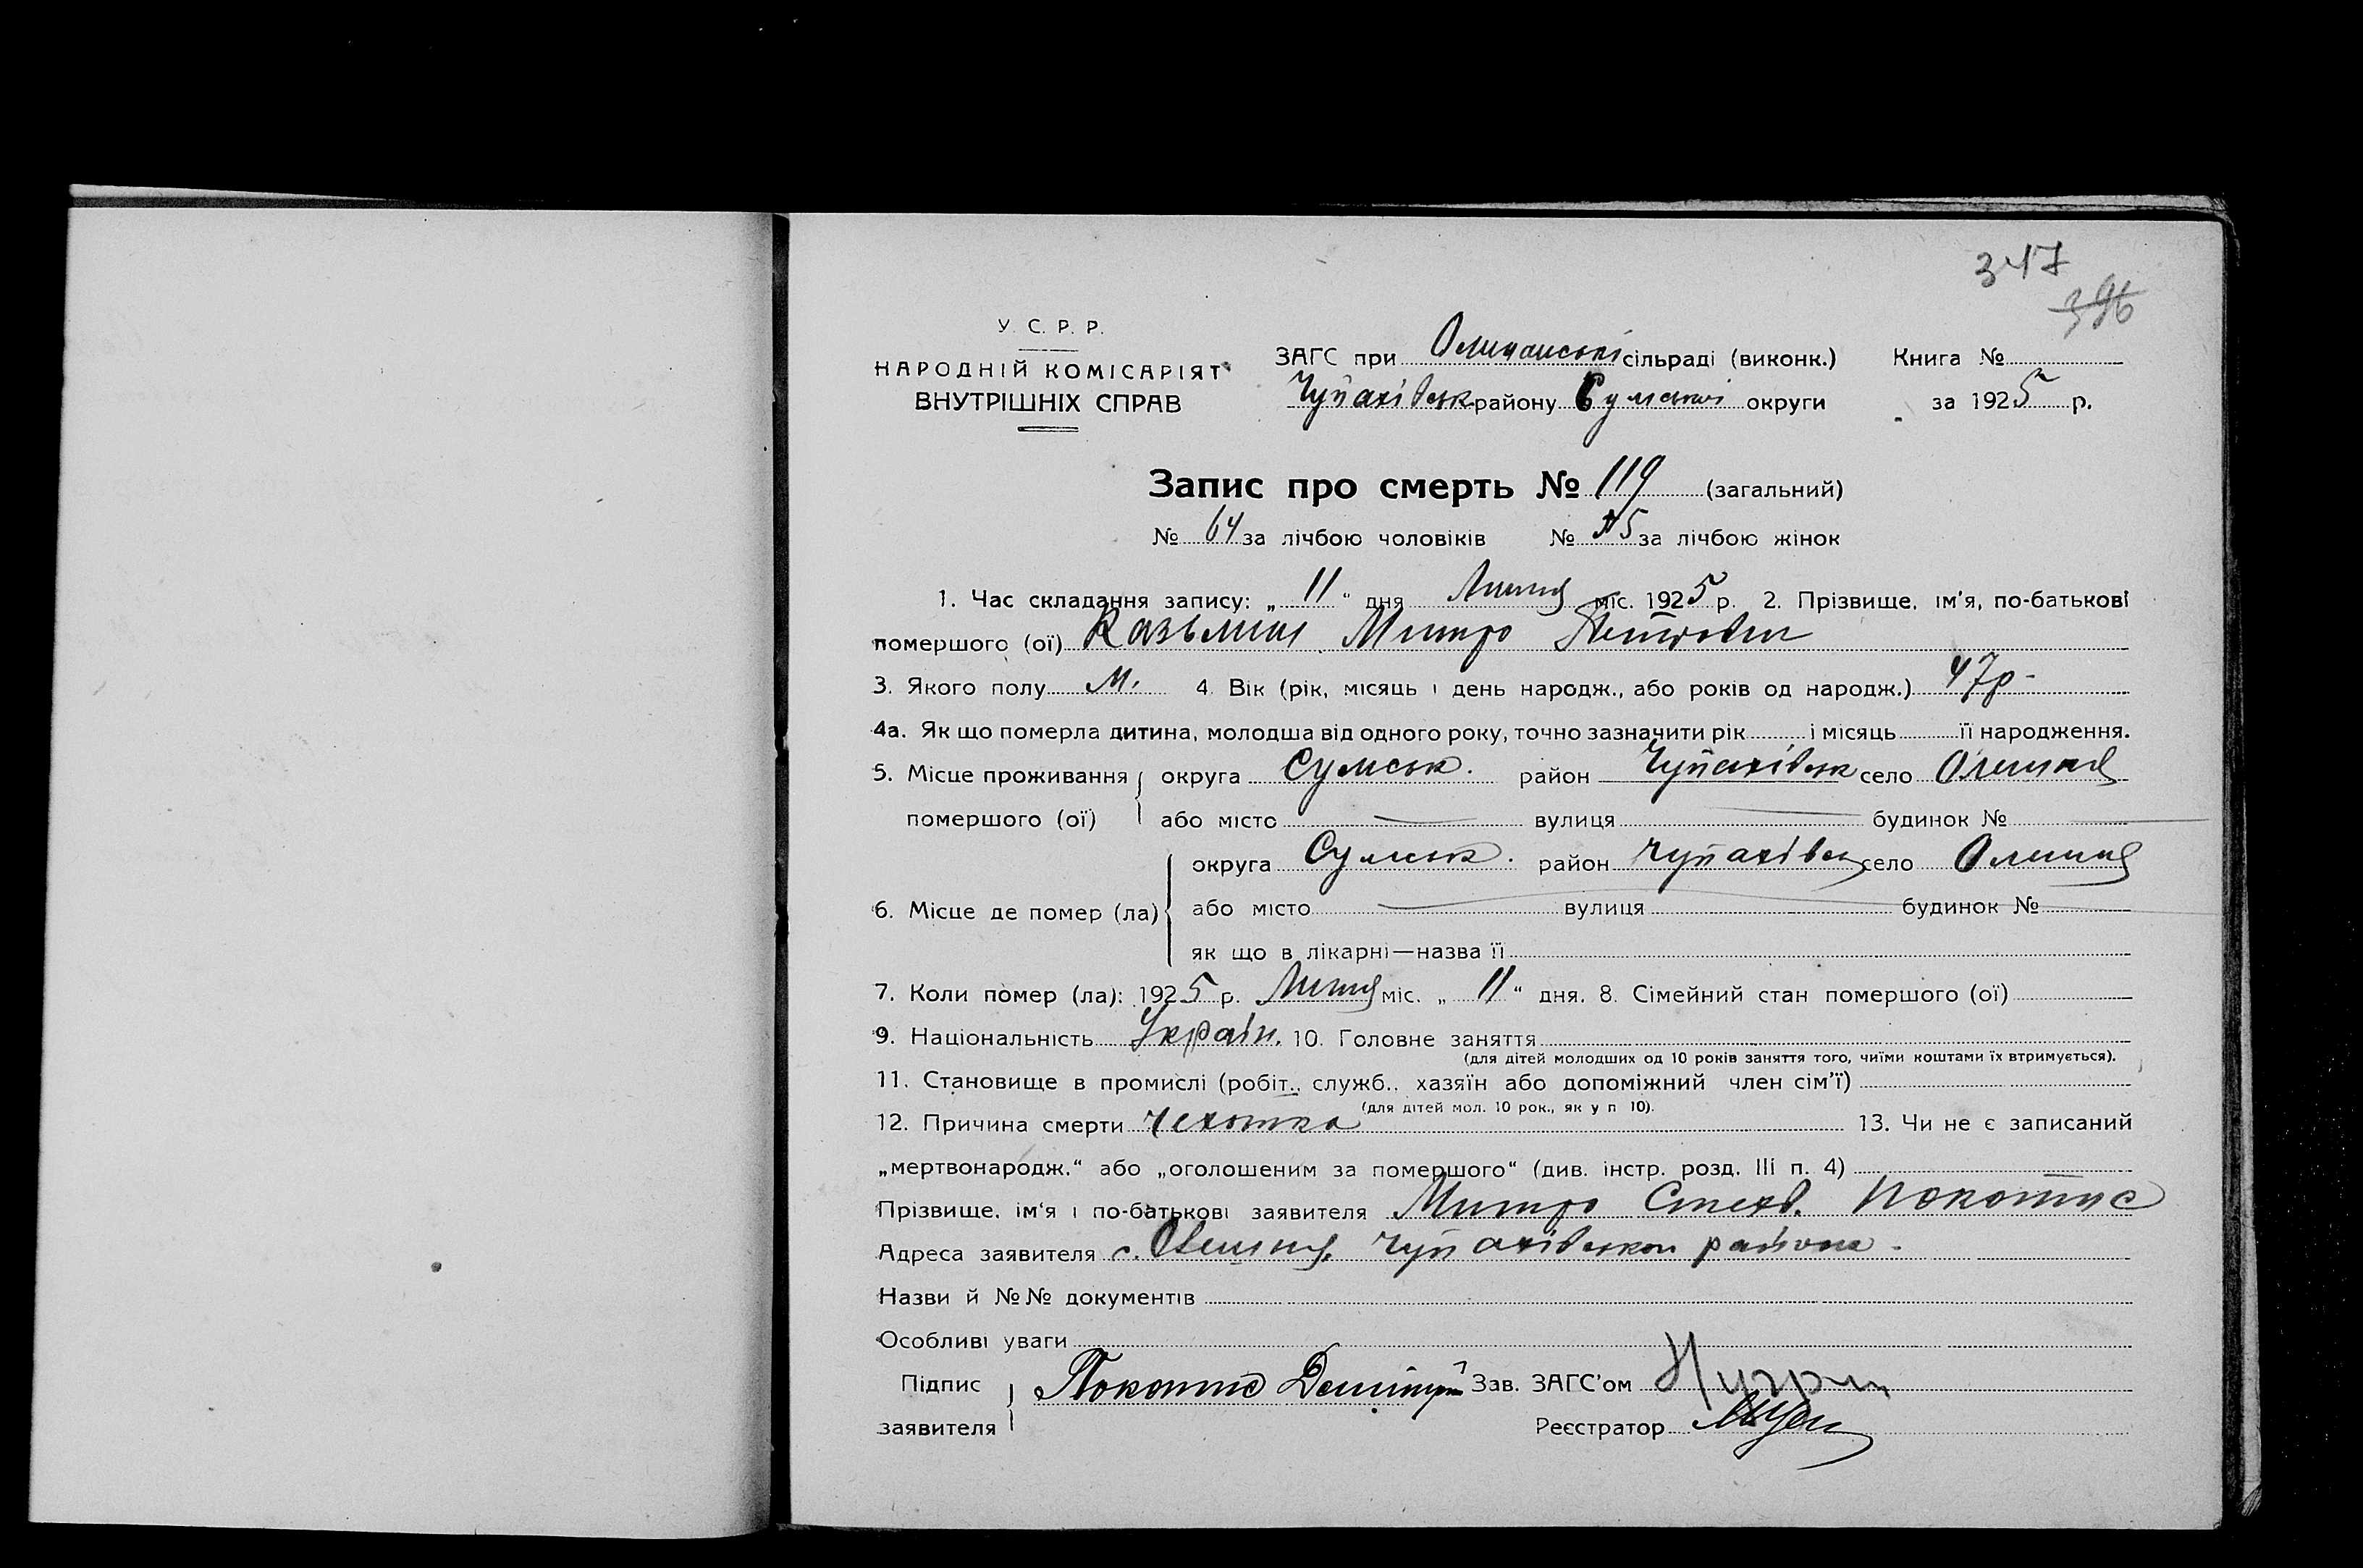 347
396
У. С. Р. Р.
НАРОДНІЙ КОМІСАРІЯТ
ВНУТРІШНІХ СПРАВ
ЗАГС при сільраді (виконк.) Книга №
Чупахівськ району Сумської округи за 1925 р.
Запис про смерть № 119 (загальний)
№ 64 за лічбою чоловіків № 55 за лічбою жінок
1. Час складання запису: „ 11 “ дня Липня міс. 1925 р. 2. Прізвище, ім'я, по-батькові
помершого (ої) Казьмин Митро Петрович
3. Якого полу М. 4. Вік (рік, місяць і день народж., або років од народж.) 47р-
4а. Як що померла дитина, молодша від одного року, точно зазначити рік і місяць її народження.
5. Місце проживання округа Сумськ. район Чупахівськ село Олешня
помершого (ої) або місто — вулиця — будинок № —
округа Сумськ. район Чупахівськ село Олешня
6. Місце де помер (ла) або місто — вулиця будинок №
як що в лікарні—назва її
7. Коли помер (ла): 1925 р. Липня міс. „ 11 “ дня. 8. Сімейний стан помершого (ої)
9. Національність Україн. 10. Головне заняття
(для дітей молодших од 10 років заняття того, чиїми коштами їх втримується).
11. Становище в промислі (робіт., служб., хазяїн або допоміжний член сім'ї)
(для дітей мол. 10 рок., як у п 10).
12. Причина смерти Чехотка 13. Чи не є записаний
„мертвонародж.“ або „оголошеним за помершого“ (див. інстр. розд. III п. 4)
Прізвище, ім'я і по-батькові заявителя Митро Покотис
Адреса заявителя с. Олешня, Чупахівського района.
Назви й №№ документів
Особливі уваги
Підпис Покотис Зав. ЗАГС'ом
заявителя Реєстратор